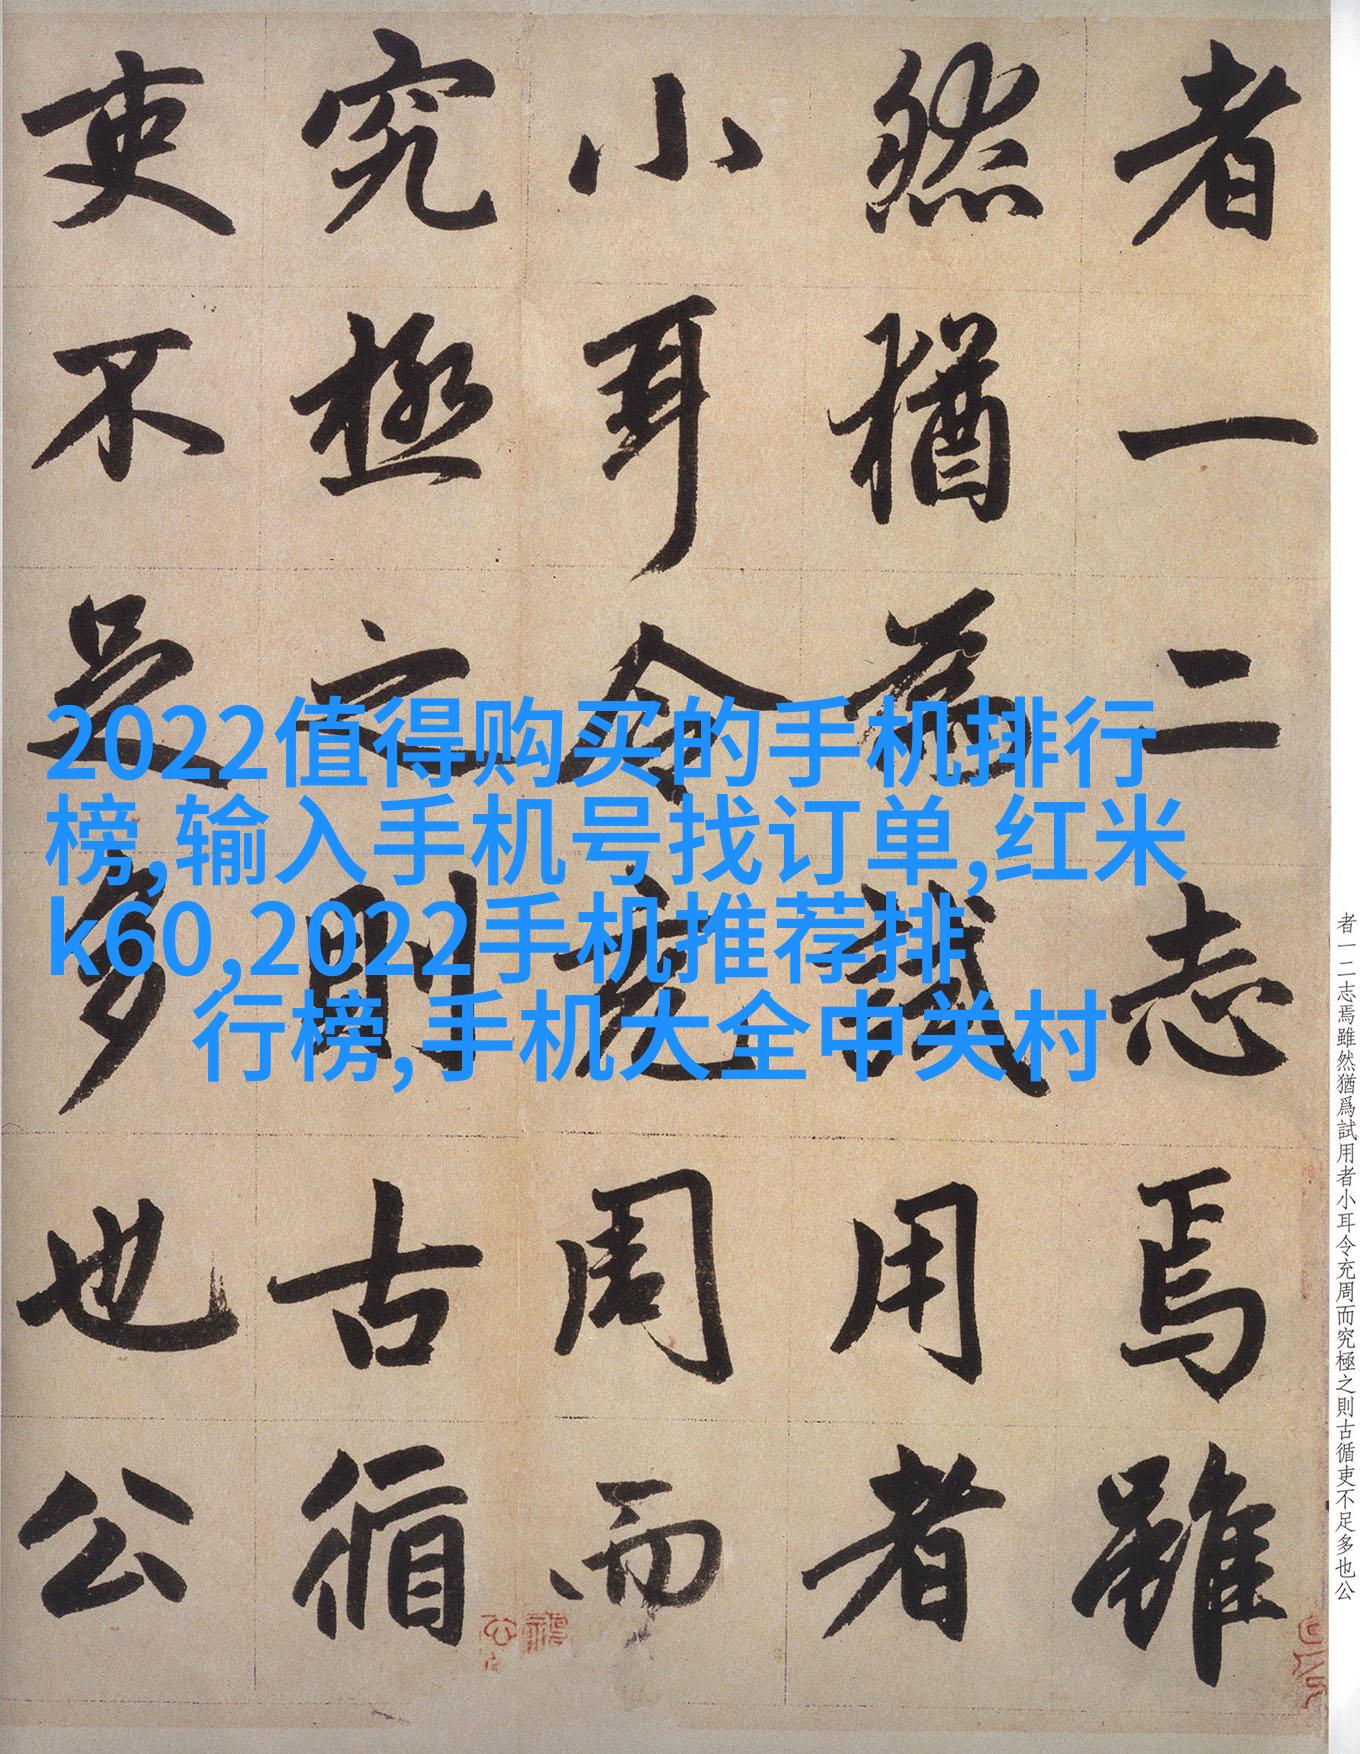 2022值得购买的手机排行
榜,输入手机号找订单,红米
k60,2022手机推荐排
行榜,手机大全中关村
者一二志焉雖
然猶為試用者
小耳令充周而
究極之則古循
吏不足多也公
者一二志焉雖然猶爲試用者小耳令充周而究極之則古循吏不足多也公